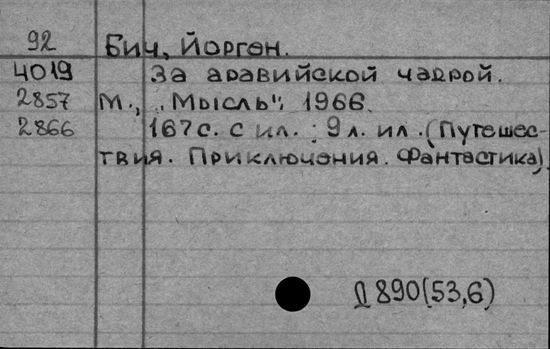 92 Бич, Йорген.
4019 За аравийской чадрой.
2857 М., „Мысль", 1966.
2866 167с. с ил.; 9л. ил. (Путешес-
твия. Приключения. Фантастика).
Д 890(53,6)